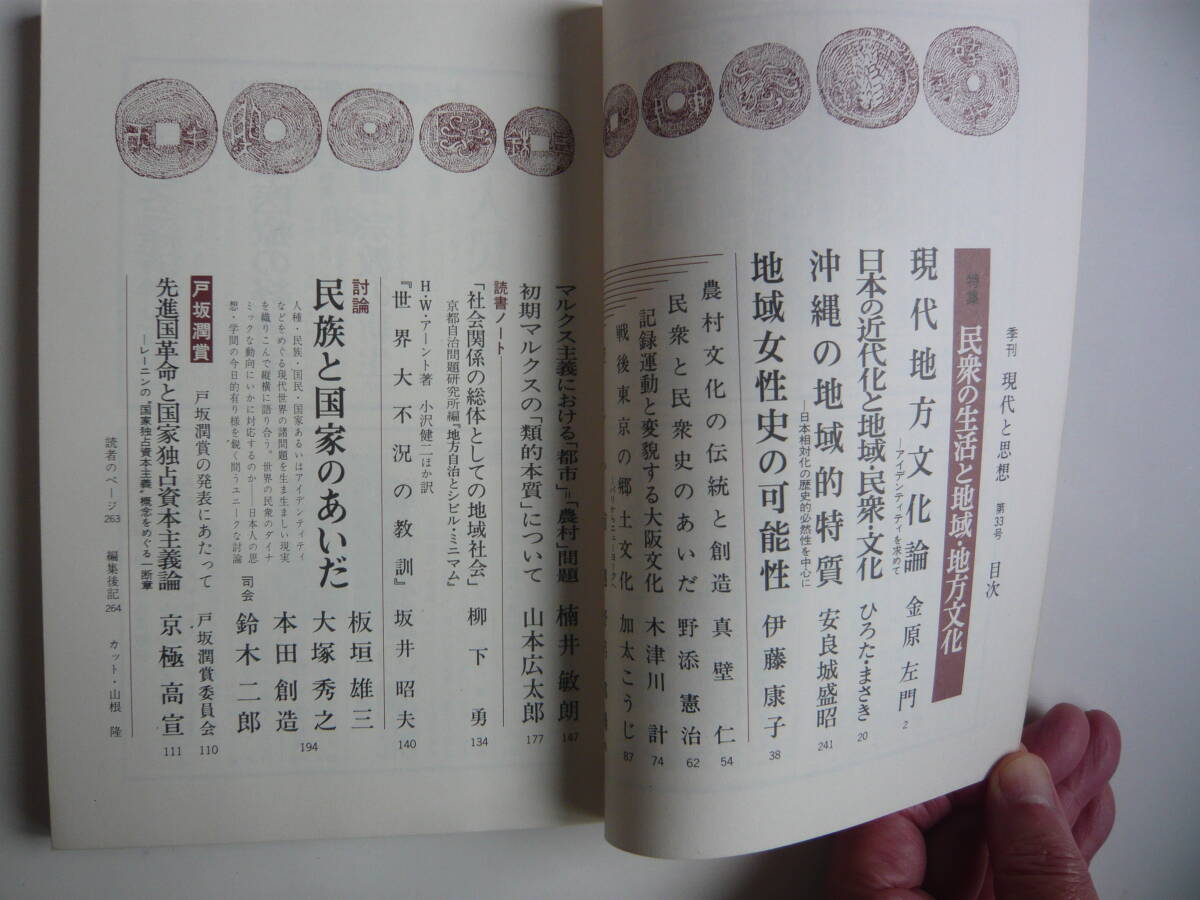 季刊 現代と思想 第33号 目次
特集 民衆の生活と地域・地方文化
現代地方文化論 金原左門 2
―アイデンティティを求めて
日本の近代化と地域・民衆・文化 ひろた・まさき 20
沖縄の地域的特質 安良城盛昭 241
―日本相対化の歴史的必然性を中心に
地域女性史の可能性 伊藤康子 38
農村文化の伝統と創造 真壁仁 54
民衆と民衆史のあいだ 野添憲治 62
記録運動と変貌する大阪文化 木津川計 74
戦後東京の郷土文化 加太こうじ 87
マルクス主義における「都市」=「農村」問題 楠井敏朗 147
初期マルクスの「類的本質」について 山本広太郎 177
読書ノート
「社会関係の総体としての地域社会」 柳下勇 134
京都自治問題研究所編『地方自治とシビル・ミニマム』
H・W・アーント著 小沢健二ほか訳
『世界大不況の教訓』 坂井昭夫 140
討論
民族と国家のあいだ
板垣雄三
大塚秀之
本田創造
司会 鈴木二郎
194
人種・民族・国民・国家あるいはアイデンティティ
などをめぐる現代世界の諸問題を生ま生ましい現実
を織りこんで縦横に語り合う。世界の民衆のダイナ
ミックな動向にいかに対応するのか――日本人の思
想・学問の今日的有り様を鋭く問うユニークな討論
戸坂潤賞 戸坂潤賞の発表にあたって 戸坂潤賞委員会 110
先進国革命と国家独占資本主義論 京極高宣 111
―レーニンの“国家独占資本主義”概念をめぐる一断章
読者のページ 263 編集後記 264 カット・山根隆